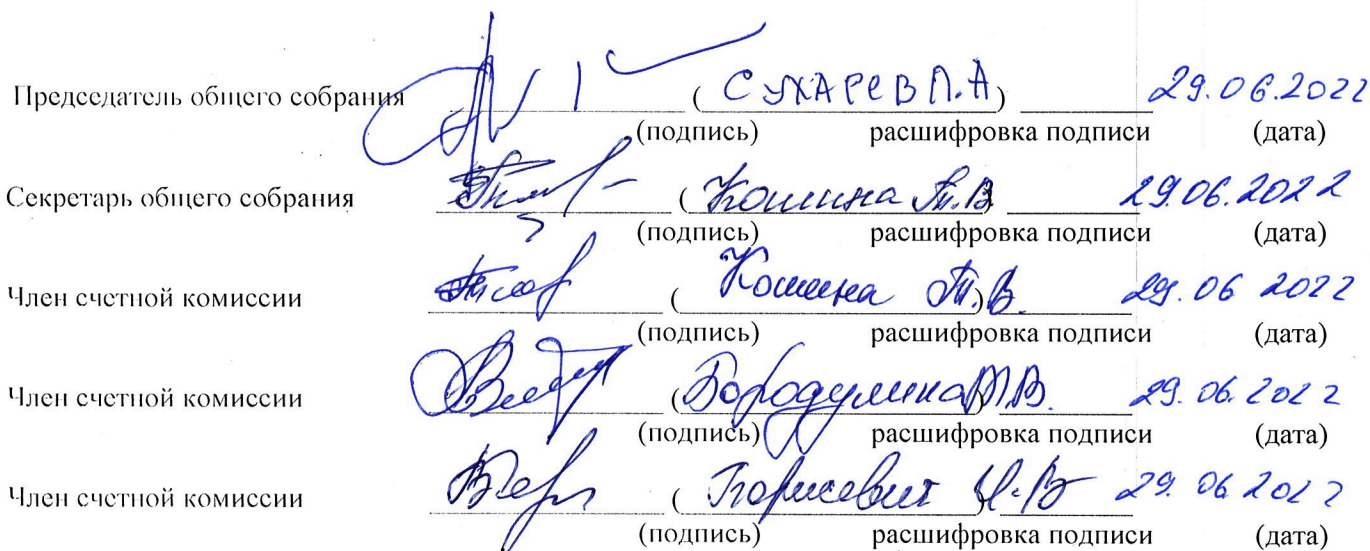 Председатель общего собрания (СУХАРЕВ П.А) 29.06.2022
(подпись) расшифровка подписи (дата)
Секретарь общего собрания (Кошина Т.В) 29.06.2022
(подпись) расшифровка подписи (дата)
Член счетной комиссии (Кошина Т.В.) 29.06 2022
(подпись) расшифровка подписи (дата)
Член счетной комиссии (Бородулина В.) 29.06.2022
(подпись) расшифровка подписи (дата)
Член счетной комиссии ( ) 29.06 2022
(подпись) расшифровка подписи (дата)